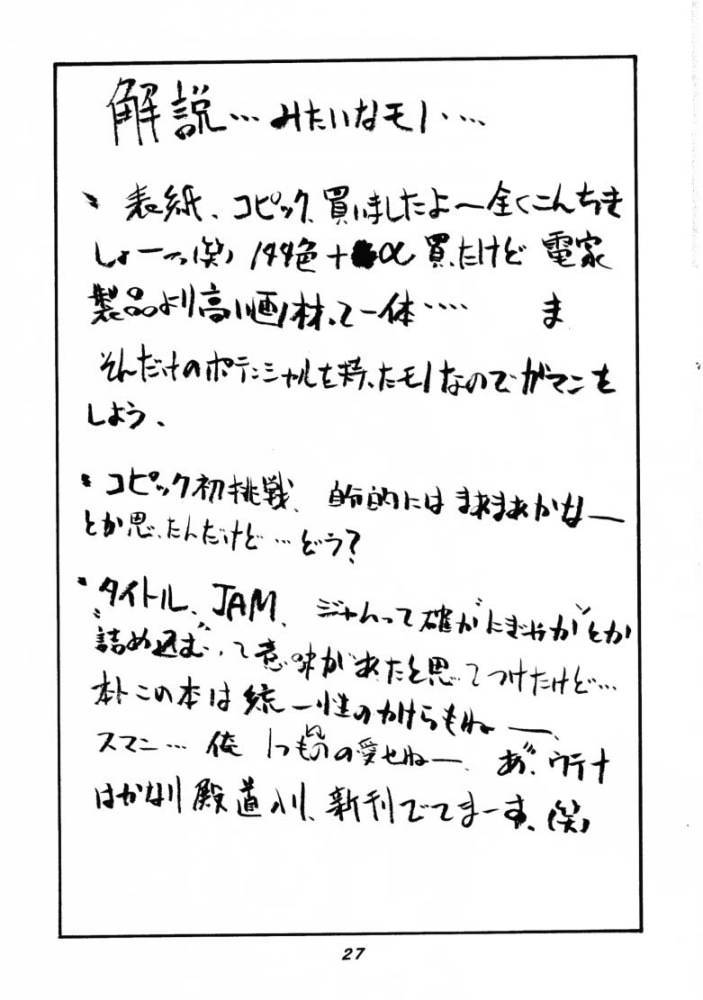 解説…みたいなモノ・…
・表紙、コピック、買いましたよ〜全くこんちき
しょーっ(笑) 144色+α買ったけど 電家
製品より高い画材って一体‥‥ ま
そんだけのポテンシャルを持ったモノなのでガマンを
しよう、
・コピック初挑戦、自分的にはまあまあかなー
とか思ったんだけど…どう?
・タイトル、JAM、ジャムって確か"にぎやか"とか
"詰め込む"って意味があったと思ってつけたけど…
本トこの本は統一性のかけらもねー、
スマン…俺 いつもの愛せねー、あ、ウテナ
はかなり殿道入り、新刊でてまーす、(笑)
27